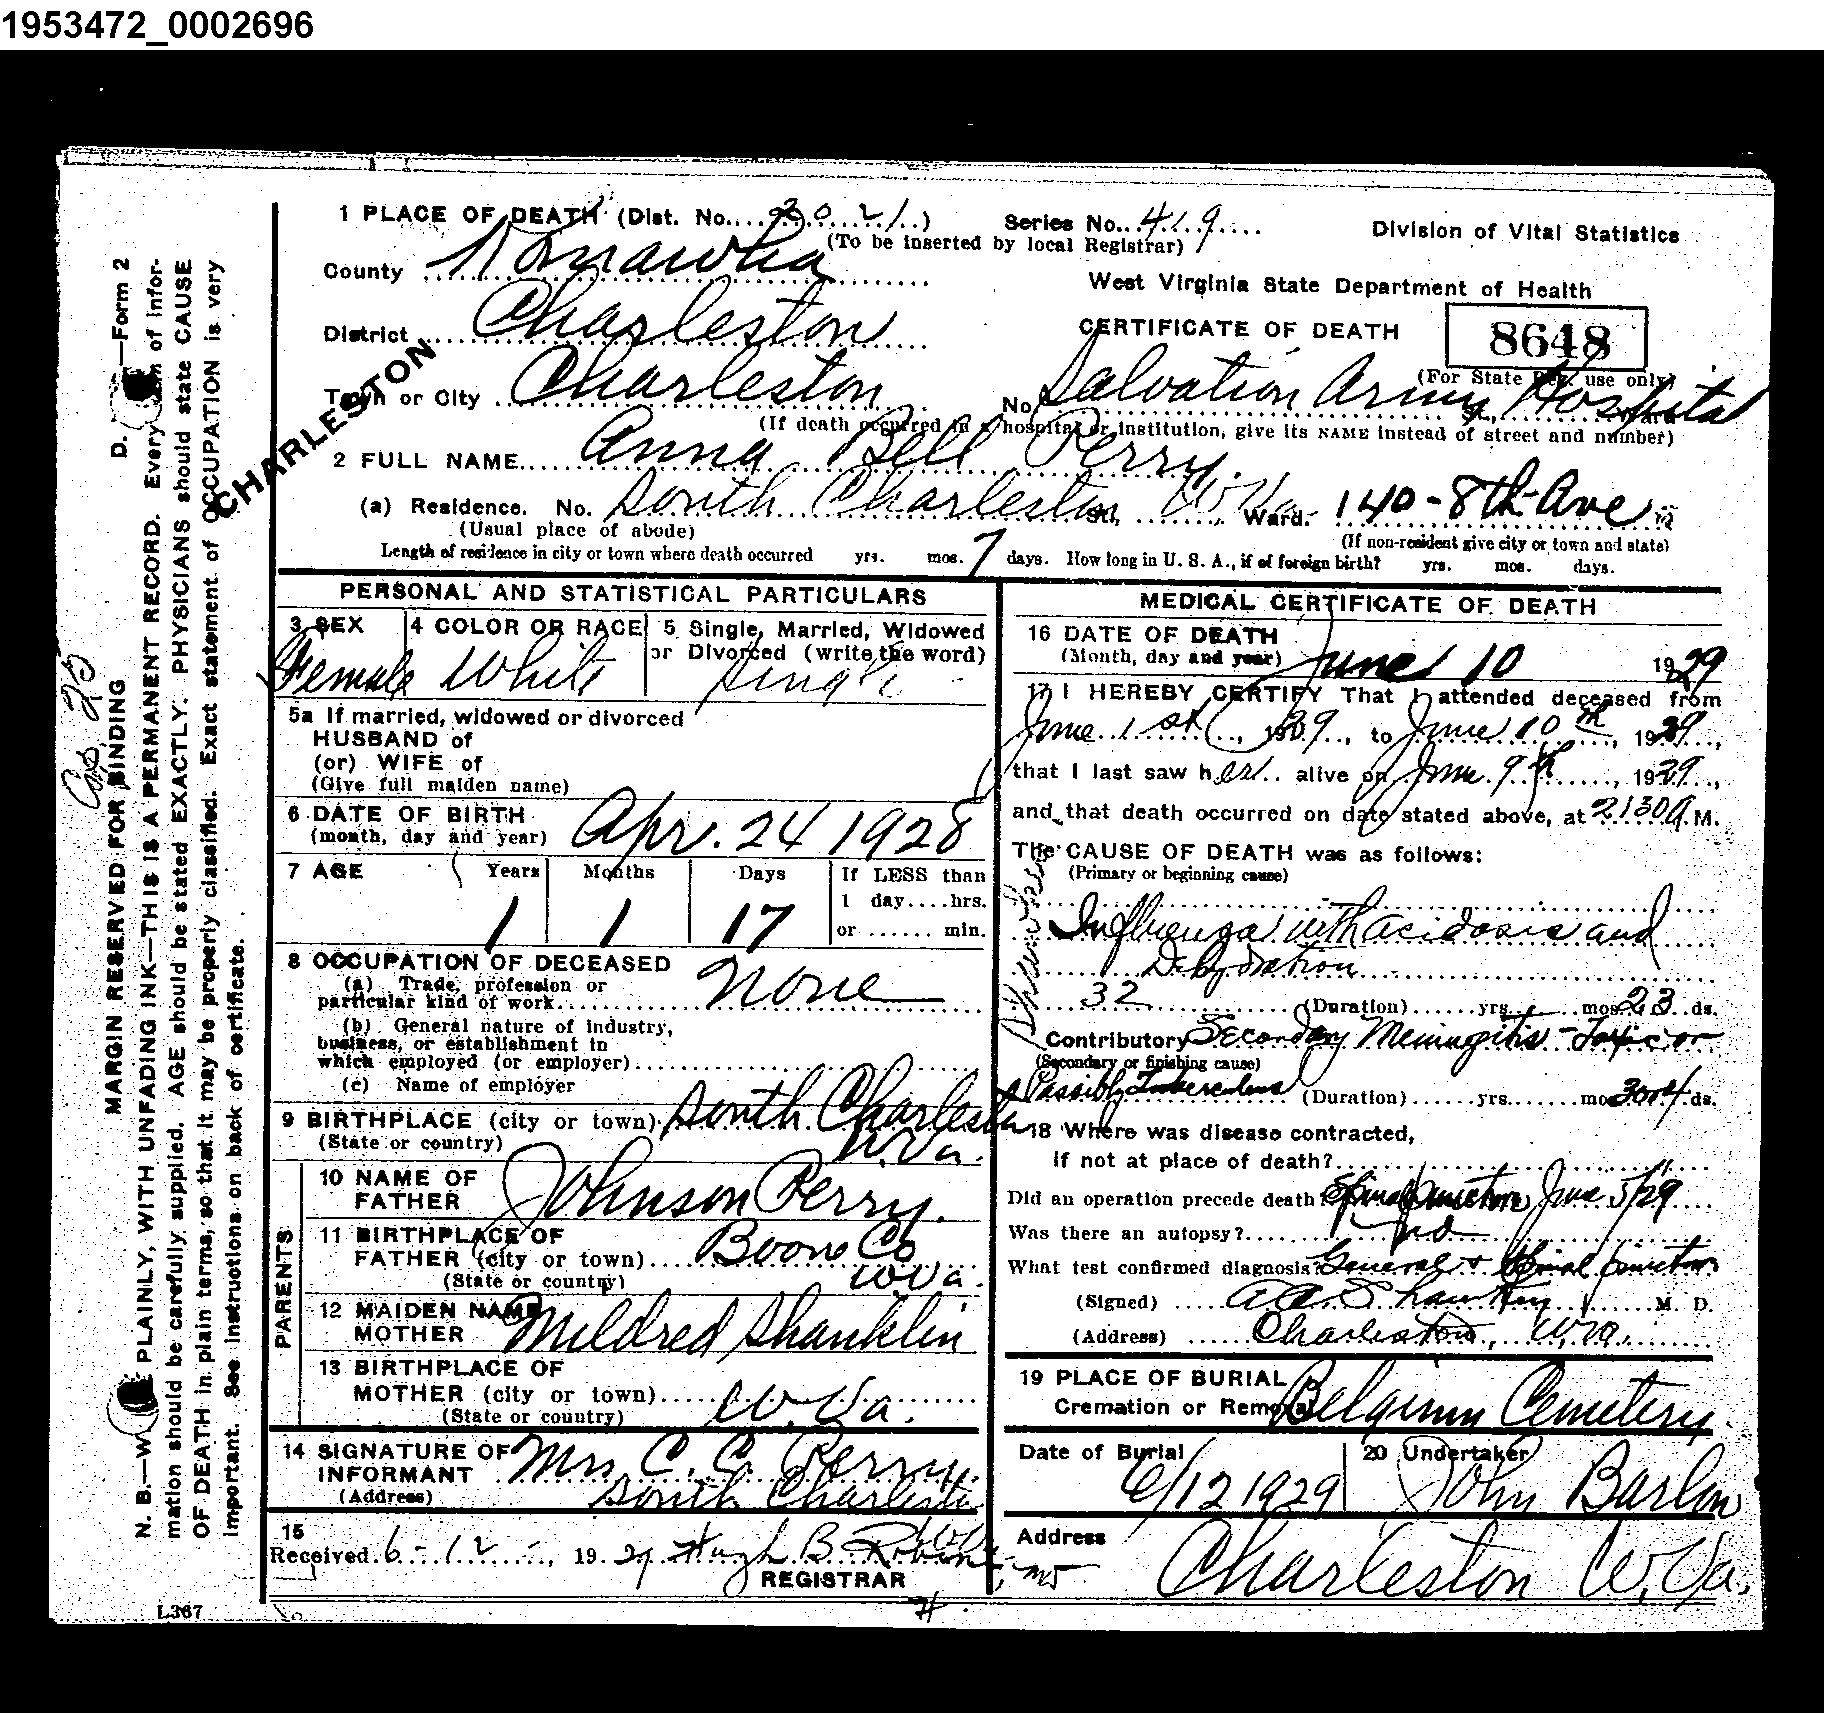 1953472_0002696
1 PLACE OF DEATH (Dist. No. 20 21) Series No. 419
(To be inserted by local Registrar)
Division of Vital Statistics
County Kanawha
West Virginia State Department of Health
District Charleston
CERTIFICATE OF DEATH 8648
(For State Reg. use only)
CHARLESTON
Town or City Charleston No. Salvation Army Hospital St., Ward
(If death occurred in a hospital or institution, give its NAME instead of street and number)
2 FULL NAME Anna Bell Perry.
(a) Residence. No. South Charleston W Va St., Ward. 140 - 8th Ave
(Usual place of abode) (If non-resident give city or town and state)
Length of residence in city or town where death occurred yrs. mos. 7 days. How long in U. S. A., if of foreign birth? yrs. mos. days.
PERSONAL AND STATISTICAL PARTICULARS
3 SEX 4 COLOR OR RACE 5 Single, Married, Widowed
or Divorced (write the word)
Female White Single
5a If married, widowed or divorced
HUSBAND of
(or) WIFE of
(Give full maiden name)
6 DATE OF BIRTH
(month, day and year) Apr. 24 1928
7 AGE Years Months Days If LESS than
1 day....hrs.
1 1 17 or ...... min.
8 OCCUPATION OF DECEASED
(a) Trade, profession or
particular kind of work None
(b) General nature of industry,
business, or establishment in
which employed (or employer)
(c) Name of employer
9 BIRTHPLACE (city or town) South Charleston
(State or country) W. Va.
PARENTS
10 NAME OF
FATHER Johnson Perry.
11 BIRTHPLACE OF
FATHER (city or town) Boone Co
(State or country) W Va.
12 MAIDEN NAME
MOTHER Mildred Shanklin
13 BIRTHPLACE OF
MOTHER (city or town) W. Va.
(State or country)
14 SIGNATURE OF
INFORMANT Mrs C. C. Perry.
(Address) South Charleston
15
Received 6-12-, 19 29 Hugh B. Robins
REGISTRAR
MEDICAL CERTIFICATE OF DEATH
16 DATE OF DEATH
(Month, day and year) June 10 1929
17 I HEREBY CERTIFY That I attended deceased from
June 1st, 1929, to June 10th, 1929,
that I last saw her alive on June 9th, 1929,
and that death occurred on date stated above, at 2:30 A.M.
The CAUSE OF DEATH was as follows:
(Primary or beginning cause)
Influenza with acidosis and
Dehydration
32 (Duration) yrs. mos. 23 ds.
Contributory Secondary Meningitis - Toxic or
(Secondary or finishing cause)
Possibly Tuberculous (Duration) yrs. mos. 3 or 4 ds.
18 Where was disease contracted,
if not at place of death?
Did an operation precede death? Spinal puncture June 5/29
Was there an autopsy? no
What test confirmed diagnosis? General + Spinal puncture
(Signed) A A Shawkey M. D.
(Address) Charleston, W. Va.
19 PLACE OF BURIAL
Cremation or Removal Belgium Cemetery.
Date of Burial 6/12 1929
20 Undertaker John Barlow
Address Charleston W. Va.
MARGIN RESERVED FOR BINDING
D. —Form 2
N. B.—W PLAINLY, WITH UNFADING INK—THIS IS A PERMANENT RECORD. Every item of infor-
mation should be carefully supplied. AGE should be stated EXACTLY. PHYSICIANS should state CAUSE
OF DEATH in plain terms, so that it may be properly classified. Exact statement of OCCUPATION is very
important. See instructions on back of certificate.
L367